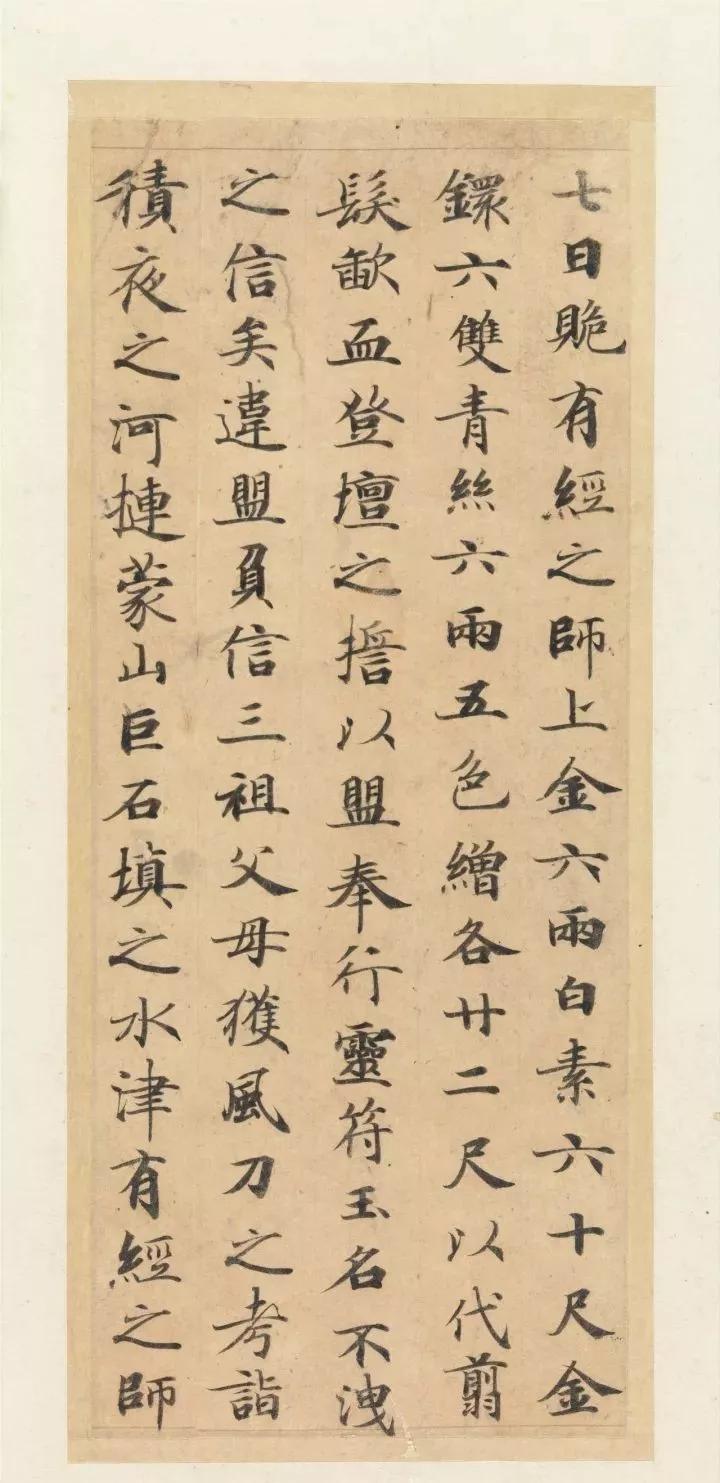 七日貹有經之師上金六兩白素六十尺金
鐶六雙青絲六兩五色繒各廿二尺以代翦
髮歃血登壇之擔以盟奉行靈符玉名不洩
之信矣違盟負信三祖父母獲風刀之考詣
積夜之河摙蒙山巨石填之水津有經之師